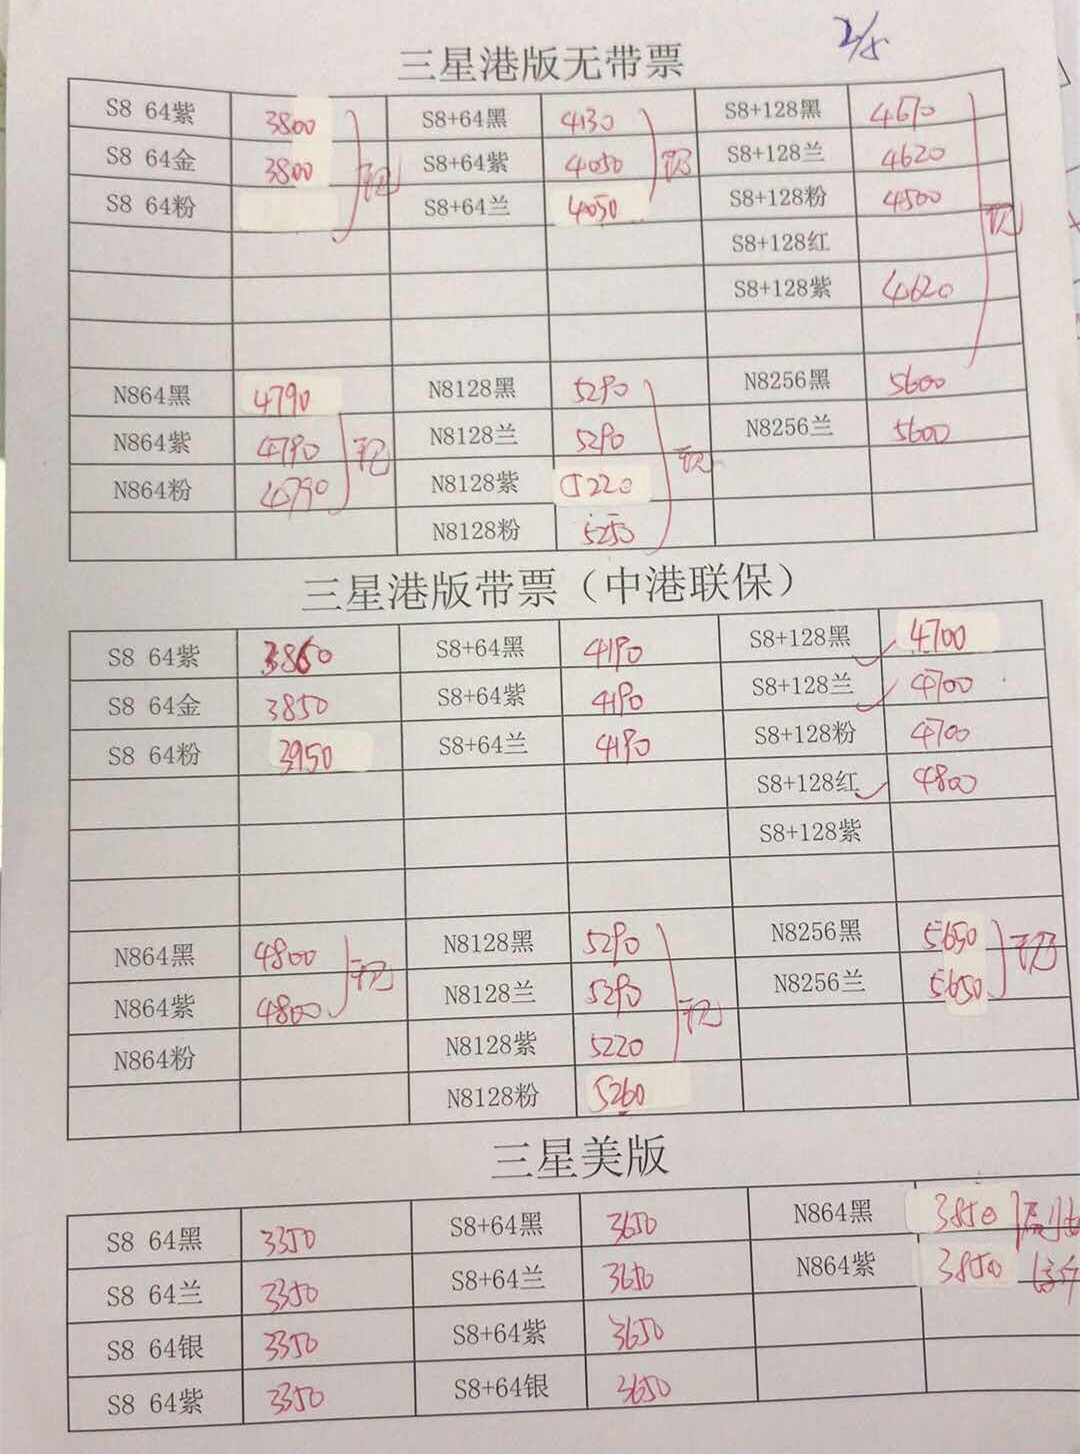 2/8
三星港版无带票
S8 64紫 3800 S8+64黑 4130 S8+128黑 4670
S8 64金 3800 S8+64紫 4050 S8+128兰 4620
S8 64粉 S8+64兰 4050 S8+128粉 4500
现 现 现
S8+128红
S8+128紫 4620
N864黑 4790 N8128黑 5290 N8256黑 5600
N864紫 4790 N8128兰 5290 N8256兰 5600
现 现
N864粉 4790 N8128紫 5220
N8128粉 5250
三星港版带票（中港联保）
S8 64紫 3860 S8+64黑 4190 S8+128黑 4700
S8 64金 3850 S8+64紫 4190 S8+128兰 4700
S8 64粉 3950 S8+64兰 4190 S8+128粉 4700
S8+128红 4800
S8+128紫
N864黑 4800 N8128黑 5290 N8256黑 5650
现 现 现
N864紫 4800 N8128兰 5290 N8256兰 5650
N864粉 N8128紫 5220
N8128粉 5260
三星美版
S8 64黑 3350 S8+64黑 3650 N864黑 3850
S8 64兰 3350 S8+64兰 3650 N864紫 3850
S8 64银 3350 S8+64紫 3650
S8 64紫 3350 S8+64银 3650